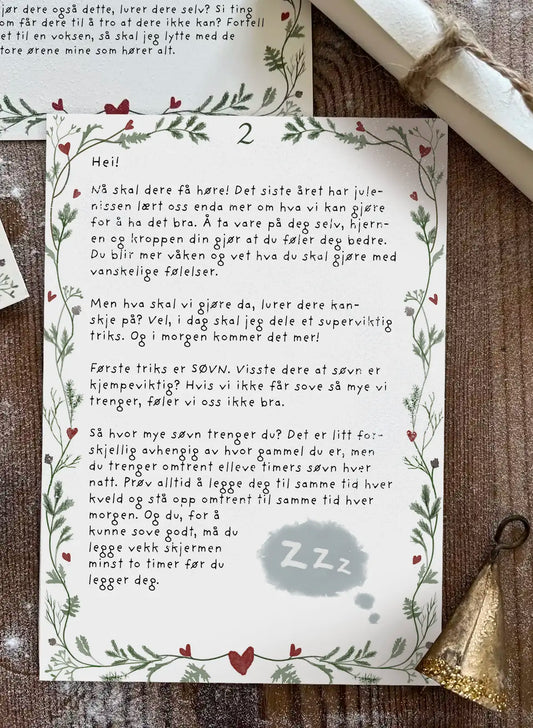 jør dere også dette, lurer dere selv? Si ting
om får dere til å tro at dere ikke kan? Fortell
et til en voksen, så skal jeg lytte med de
tore ørene mine som hører alt.
2
Hei!
Nå skal dere få høre! Det siste året har jule-
nissen lært oss enda mer om hva vi kan gjøre
for å ha det bra. Å ta vare på deg selv, hjern-
en og kroppen din gjør at du føler deg bedre.
Du blir mer våken og vet hva du skal gjøre med
vanskelige følelser.
Men hva skal vi gjøre da, lurer dere kan-
skje på? Vel, i dag skal jeg dele et superviktig
triks. Og i morgen kommer det mer!
Første triks er SØVN. Visste dere at søvn er
kjempeviktig? Hvis vi ikke får sove så mye vi
trenger, føler vi oss ikke bra.
Så hvor mye søvn trenger du? Det er litt for-
skjellig avhengig av hvor gammel du er, men
du trenger omtrent elleve timers søvn hver
natt. Prøv alltid å legge deg til samme tid hver
kveld og stå opp omtrent til samme tid hver
morgen. Og du, for å
kunne sove godt, må du
legge vekk skjermen
minst to timer før du
legger deg.
Zzz